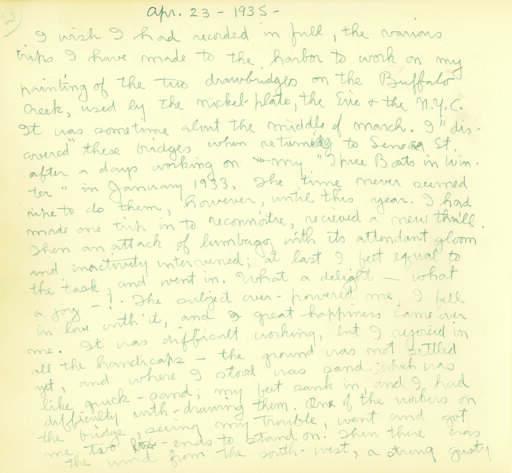 Apr. 23 - 1935 -
I wish I had recorded in full, the various
trips I have made to the harbor to work on my
painting of the two drawbridges on the Buffalo
Creek, used by the nickel-plate, the Erie & the N.Y.C.
It was sometime about the middle of march. I "dis-
covered" these bridges when returning to Seneca St.
after a days working on my "Three Boats in Win-
ter" in January 1933. The time never seemed
ripe to do them, however, until this year. I had
made one trip in to reconnoitre, recieved a new thrill.
Then an attack of lumbago, with its attendant gloom
and inactivity intervened; at last I felt equal to
the task, and went in. What a delight — what
a joy —! The subject over-powered me, I fell
in love with it, and a great happiness came over
me. It was difficult working, but I rejoiced in
all the handicaps — the ground was not settled
yet, and where I stood was sand which was
like quick-sand; my feet sank in, and I had
difficulty with-drawing them. One of the workers on
the bridge, seeing my trouble, went and got
me two ends to stand on. Then there was
the wind from the south-west, a strong gusty